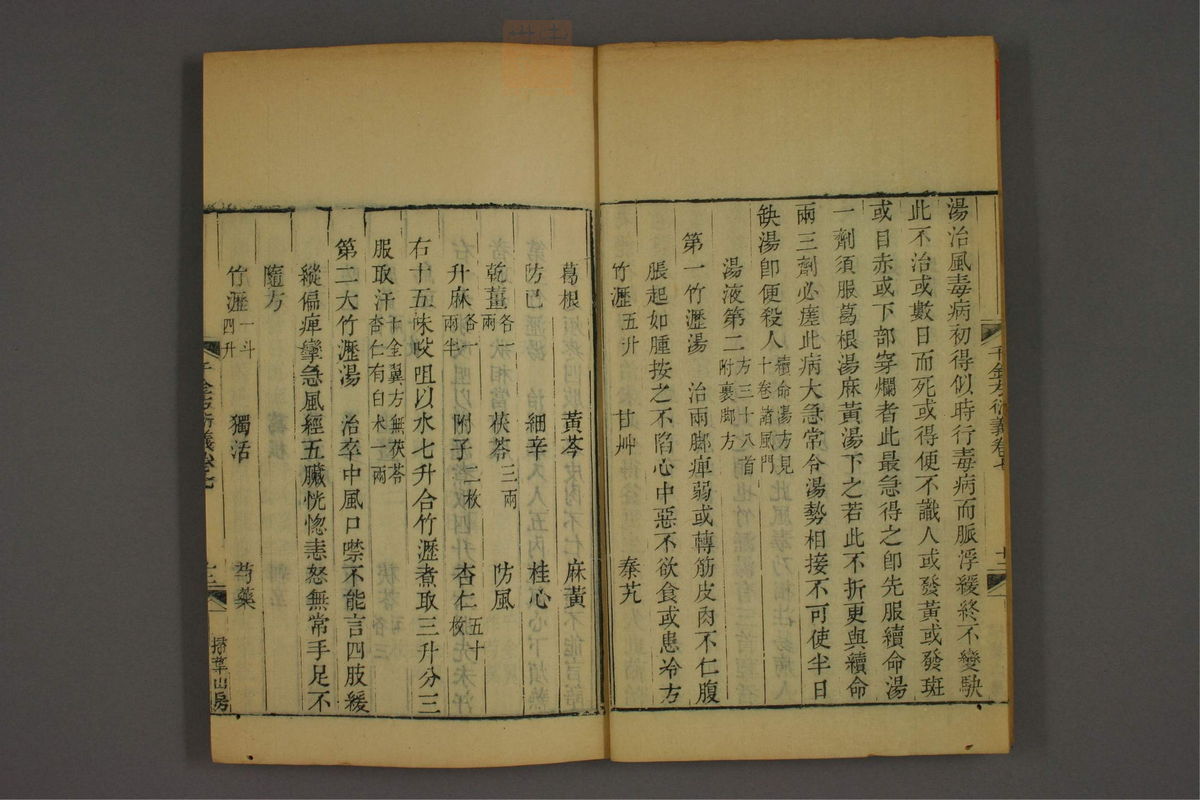 湯治風毒病初得似時行毒病而脈浮緩終不變駃
此不治或數日而死或得便不識人或發黃或發斑
或目赤或下部穿爛者此最急得之卽先服續命湯
一劑須服葛根湯麻黃湯下之若此不折更與續命
兩三劑必瘥此病大急常令湯勢相接不可使半日
缺湯卽便殺人續命湯方見十卷諸風門
湯液第二方三十八首附裹腳方
第一竹瀝湯 治兩腳痺弱或轉筋皮肉不仁腹
脹起如腫按之不陷心中惡不欲食或患冷方
竹瀝五升 甘艸 秦艽
千金方衍義卷七 十二
葛根 黃芩 麻黃
防已 細辛 桂心
乾薑各一兩 茯苓三兩 防風
升麻各一兩半 附子二枚 杏仁五十枚
右十五味㕮咀以水七升合竹瀝煮取三升分三
服取汗千金翼方無茯苓杏仁有白朮一兩
第二大竹瀝湯 治卒中風口噤不能言四肢緩
縱偏痺攣急風經五臟恍惚恚怒無常手足不
隨方
竹瀝一斗四升 獨活 芍藥
千金方衍義卷七 十二 掃葉山房